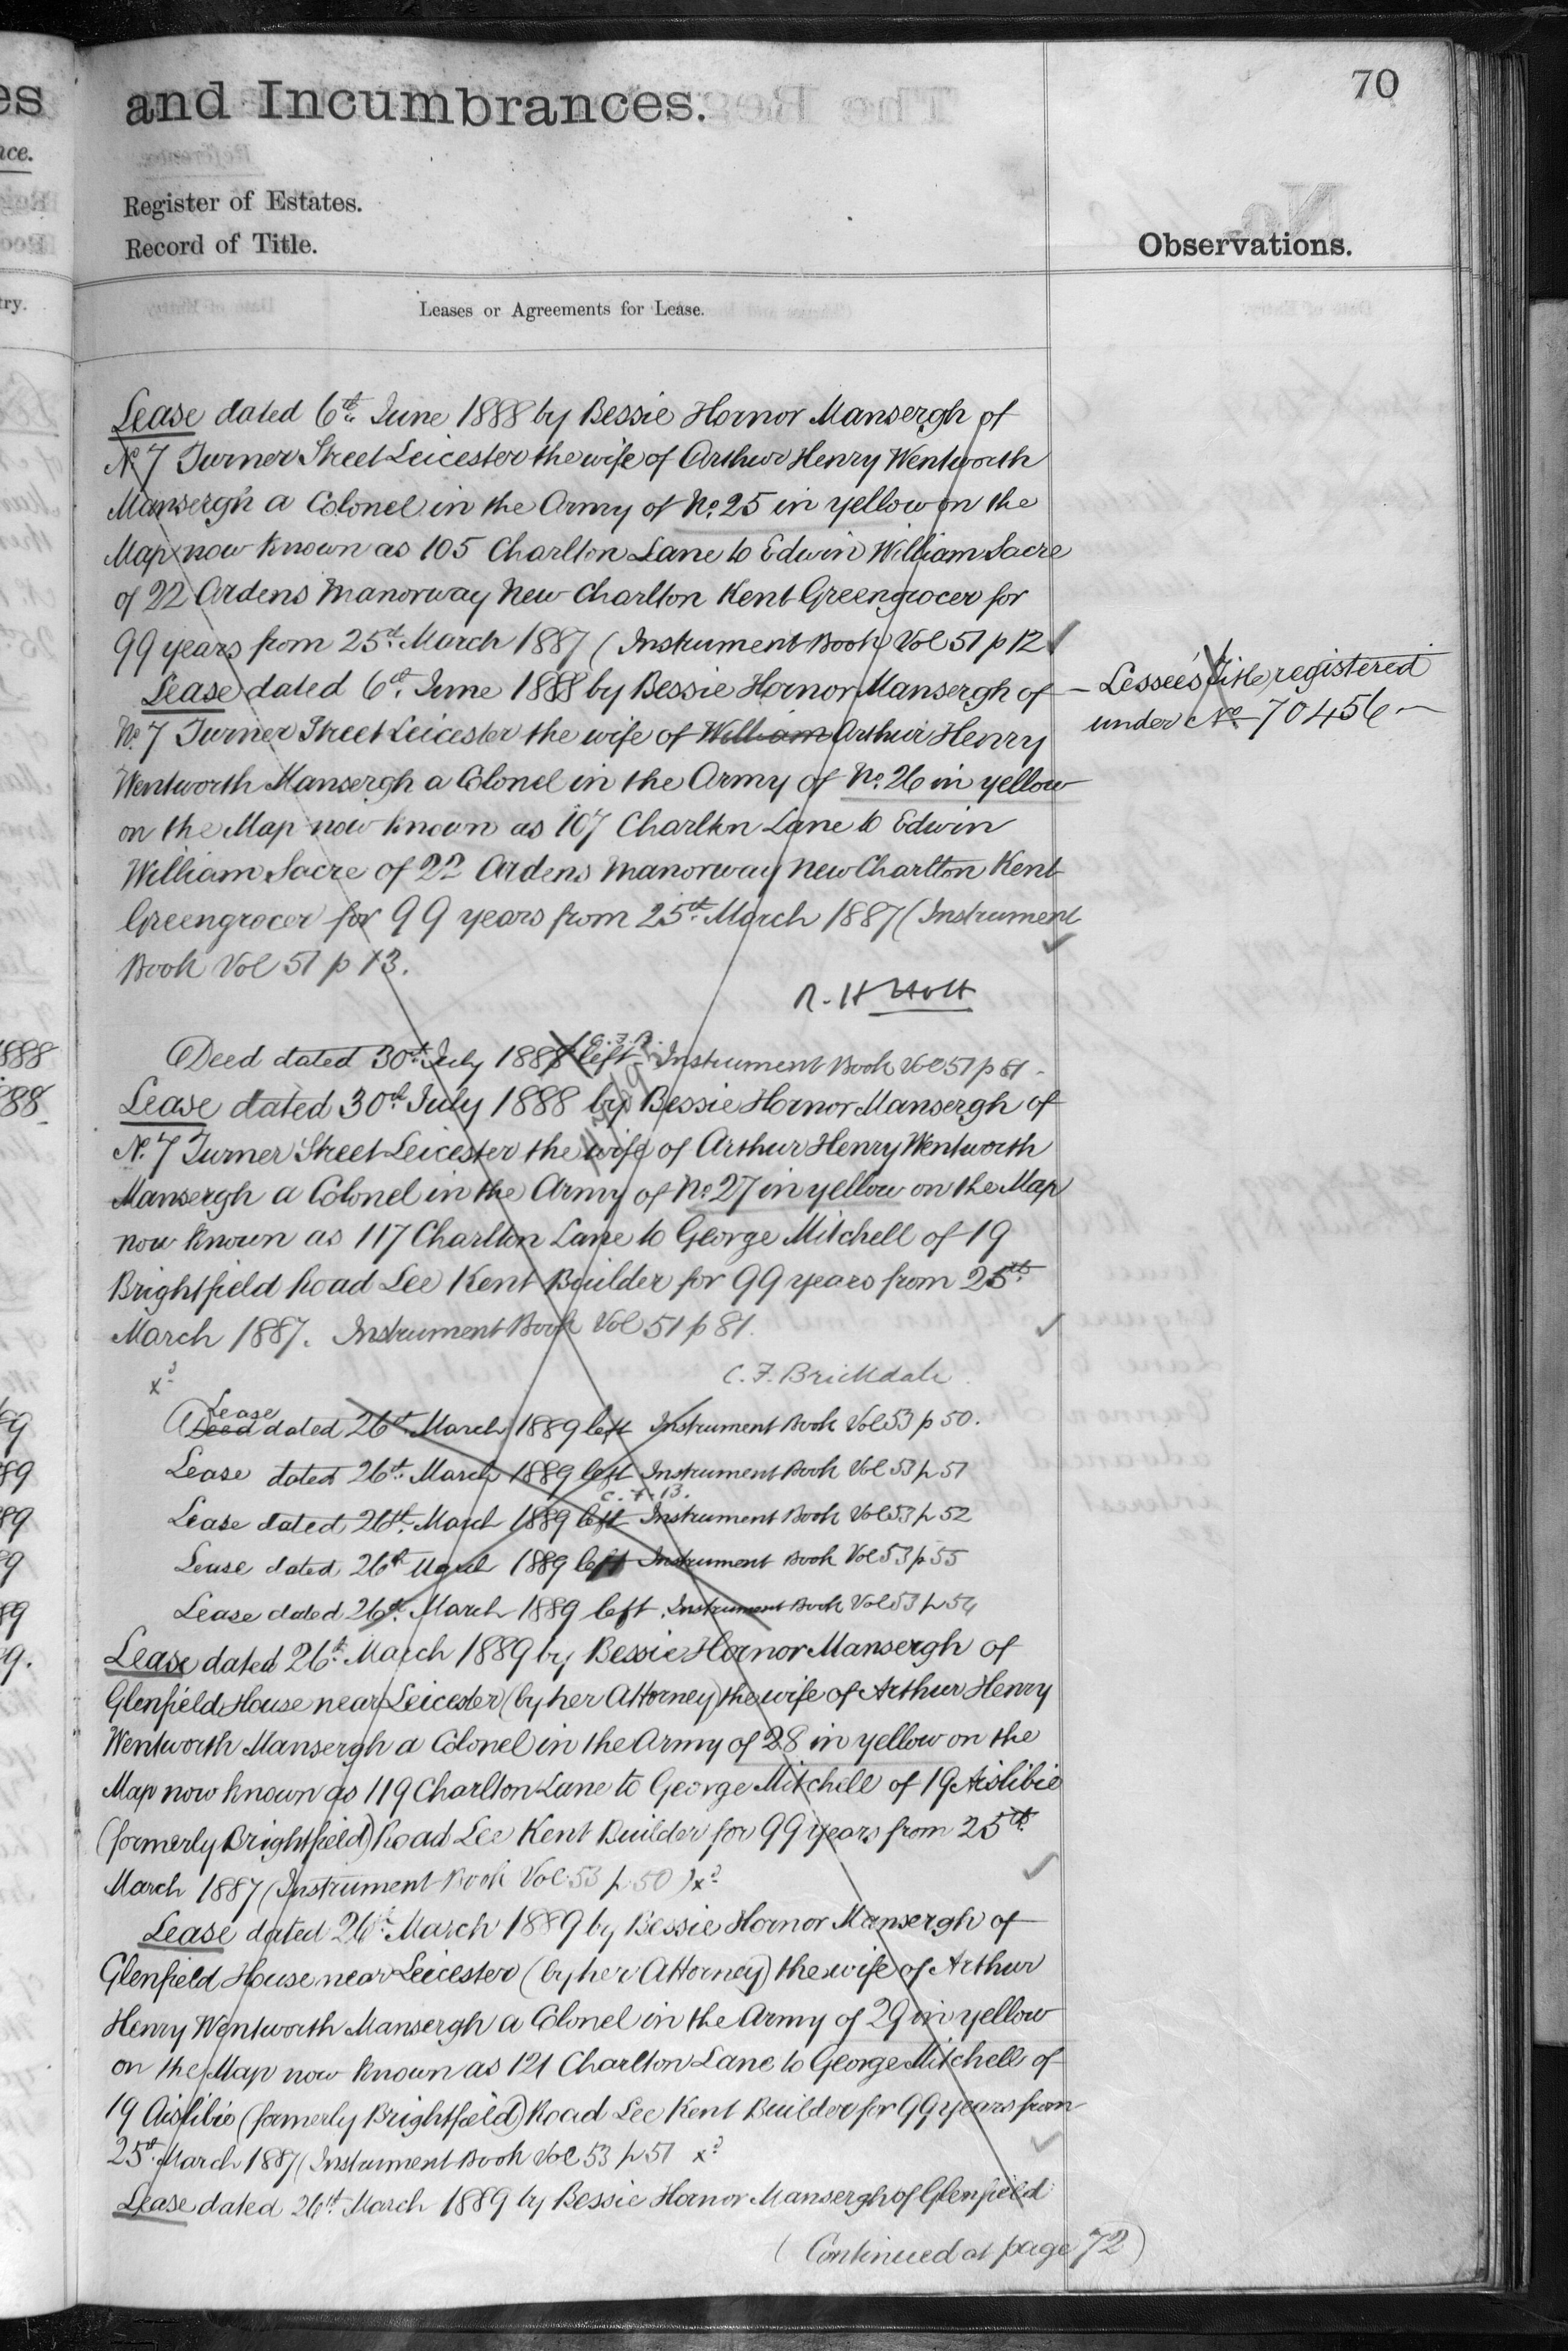 70
and Incumbrances.
Register of Estates.
Record of Title.
Observations.
Leases or Agreements for Lease.
Lease dated 6th June 1888 by Bessie Hornor Mansergh of
No 7 Turner Street Leicester the wife of Arthur Henry Wentworth
Mansergh a Colonel in the Army of No. 25 in yellow on the
Map now known as 105 Charlton Lane to Edwin William Sacre
of 22 Ardens Manorway New Charlton Kent Greengrocer for
99 years from 25th March 1887 (Instrument Book Vol 51 p 12
Lease dated 6th June 1888 by Bessie Hornor Mansergh of
No. 7 Turner Street Leicester the wife of William Arthur Henry
Wentworth Mansergh a Colonel in the Army of No. 26 in yellow
on the Map now known as 107 Charlton Lane to Edwin
William Sacre of 22 Ardens Manorway New Charlton Kent
Greengrocer for 99 years from 25th March 1887 (Instrument
Book Vol 51 p 13.
Lessee's Title registered
under No 70456
R. H Holt
Deed dated 30th July 1888 left Instrument Book Vol 51 p 81
Lease dated 30th July 1888 by Bessie Hornor Mansergh of
No. 7 Turner Street Leicester the wife of Arthur Henry Wentworth
Mansergh a Colonel in the Army of No. 27 in yellow on the Map
now known as 117 Charlton Lane to George Mitchell of 19
Brightfield Road Lee Kent Builder for 99 years from 25th
March 1887. Instrument Book Vol 51 p 81.
C. F. Brickdale
Lease
Deed dated 26th March 1889 left Instrument Book Vol 53 p 50.
Lease dated 26th March 1889 left Instrument Book Vol 53 p 51
C. F. B.
Lease dated 26th March 1889 left Instrument Book Vol 53 p 52
Lease dated 26th March 1889 left Instrument Book Vol 53 p 55
Lease dated 26th March 1889 left Instrument Book Vol 53 p 54
Lease dated 26th March 1889 by Bessie Hornor Mansergh of
Glenfield House near Leicester (by her Attorney) the wife of Arthur Henry
Wentworth Mansergh a Colonel in the Army of 28 in yellow on the
Map now known as 119 Charlton Lane to George Mitchell of 19 Aislibie
(formerly Brightfield) Road Lee Kent Builder for 99 years from 25th
March 1887 (Instrument Book Vol. 53 p. 50) xd
Lease dated 26th March 1889 by Bessie Hornor Mansergh of
Glenfield House near Leicester (by her Attorney) the wife of Arthur
Henry Wentworth Mansergh a Colonel in the Army of 29 in yellow
on the Map now known as 121 Charlton Lane to George Mitchell of
19 Aislibie (formerly Brightfield) Road Lee Kent Builder for 99 years from
25th March 1887 (Instrument Book Vol 53 p 51 xd
Lease dated 26th March 1889 by Bessie Hornor Mansergh of Glenfield
(Continued at page 72)